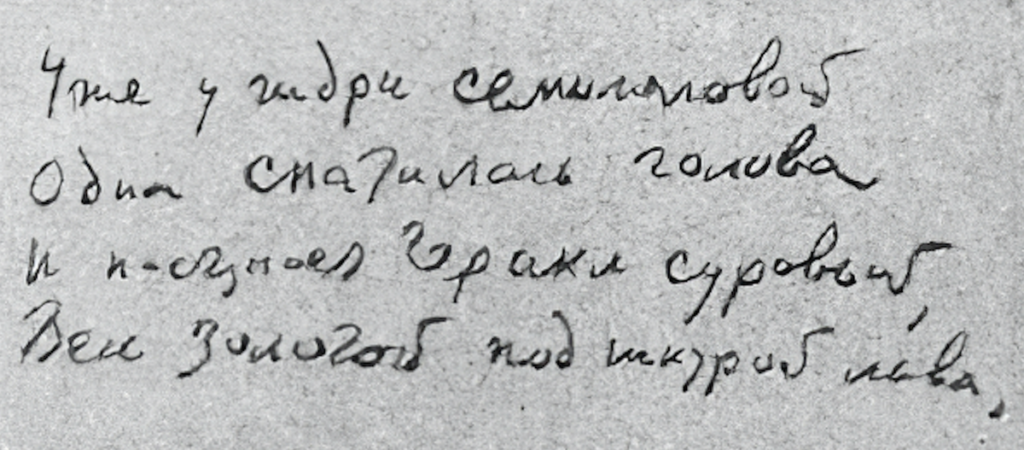 Уже у гидры семиголовой
Одна скатилась голова
И наступает Геракл суровый,
Весь золотой под шкурой льва,